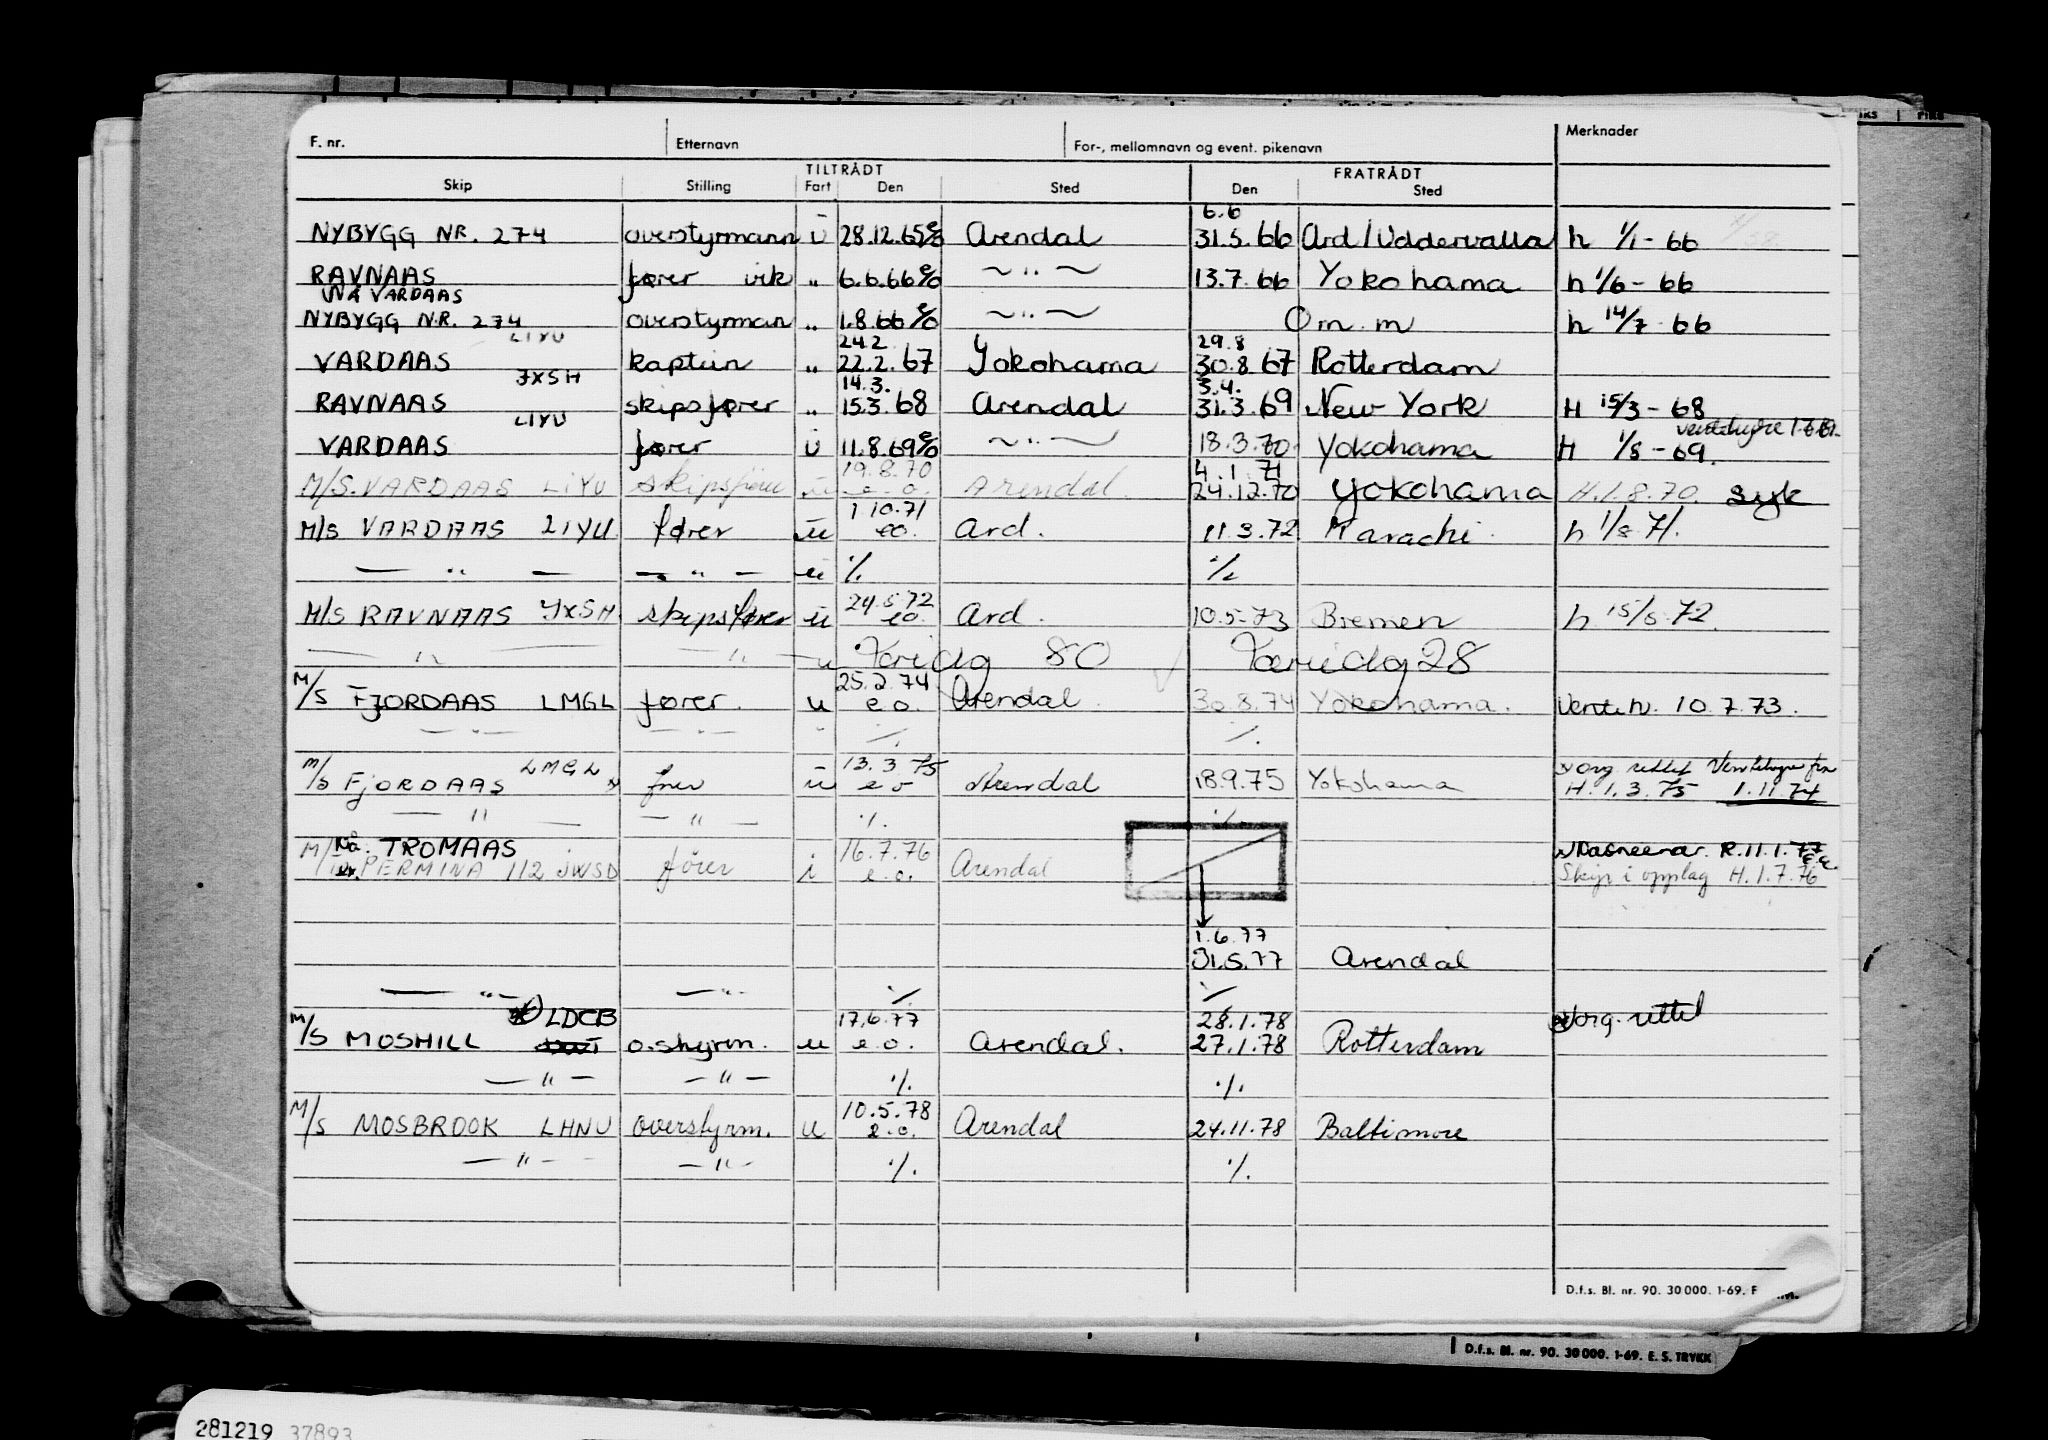 F. nr. Etternavn For-, mellomnavn og event. pikenavn Merknader
TILTRÅDT FRATRÅDT
Skip Stilling Fart Den Sted Den Sted
6.6
NYBYGG NR. 274 overstyrmann u 28.12.65 e/o Arendal 31.5.66 Ard/Uddervalla h 1/1-66
RAVNAAS fører vik " 6.6.66 e/o ~ " ~ 13.7.66 Yokohama h 1/6-66
Nå VARDAAS
NYBYGG NR. 274 overstyrman " 1.8.66 e/o ~ " ~ Om. m h 14/7 66
LIYU 24.2 29.8
VARDAAS kaptein " 22.2.67 Yokohama 30.8.67 Rotterdam
JXSH 14.3. 3.4.
RAVNAAS skipsfører " 15.3.68 Arendal 31.3.69 New York H 15/3-68
LIYU ventehyre 1.6.69.
VARDAAS fører u 11.8.69 e/o ~ " ~ 18.3.70 Yokohama H 1/8-69.
19.8.70 4.1.71
M/S. VARDAAS LIYU skipsfører u e.o. Arendal. 24.12.70 Yokohama H.1.8.70. syk
1 10.71
M/S VARDAAS LIYU fører u eo. Ard. 11.3.72 Karachi. h 1/8 71.
— " — — " — u ./. ./.
24.5.72
M/S RAVNAAS JXSH skipsfører u eo. Ard. 10.5.73 Bremen h 15/5.72.
— " — — " — u Taridg 80 Taridg 28
25.2.74
M/S FJORDAAS LMGL fører. u e.o. Arendal. 30.8.74 Yokohama. Venteh. 10.7.73.
— " — — " — " ./. ./.
LMGL 13.3.75 x) org. rettet Ventehyre fra
M/S FJORDAAS x fører u e o Arendal 18.9.75 Yokohama H.1.3.75 1.11.74
— " — — " — ./. ./.
Nå. TROMAAS 16.7.76 R.11.1.77
M/T PERMINA 112 JWSD fører i e.o. Arendal Skip i opplag H.1.7.76
1.6.77
31.5.77 Arendal
— " — — " — ./. ./.
x) LDCB 17.6.77 28.1.78 x) org. rettet
M/S MOSHILL o.styrm. u e.o. Arendal. 27.1.78 Rotterdam
— " — — " — ./. ./.
10.5.78
M/S MOSBROOK LHNU overstyrm. u e.o. Arendal 24.11.78 Baltimore
— " — — " — ./. ./.
D.f.s. Bl. nr. 90. 30 000. 1-69.
D.f.s. Bl. nr. 90. 30 000. 1-69. E. S. TRYKK
281219 37893